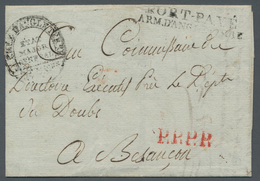 PORT-PAYÉ
ARM.D'ANG
ETAT
MAJOR
Au Commissaire du
Directoire Executif Près le Dept
du Doubs
P.P.P.P.
A Besançon